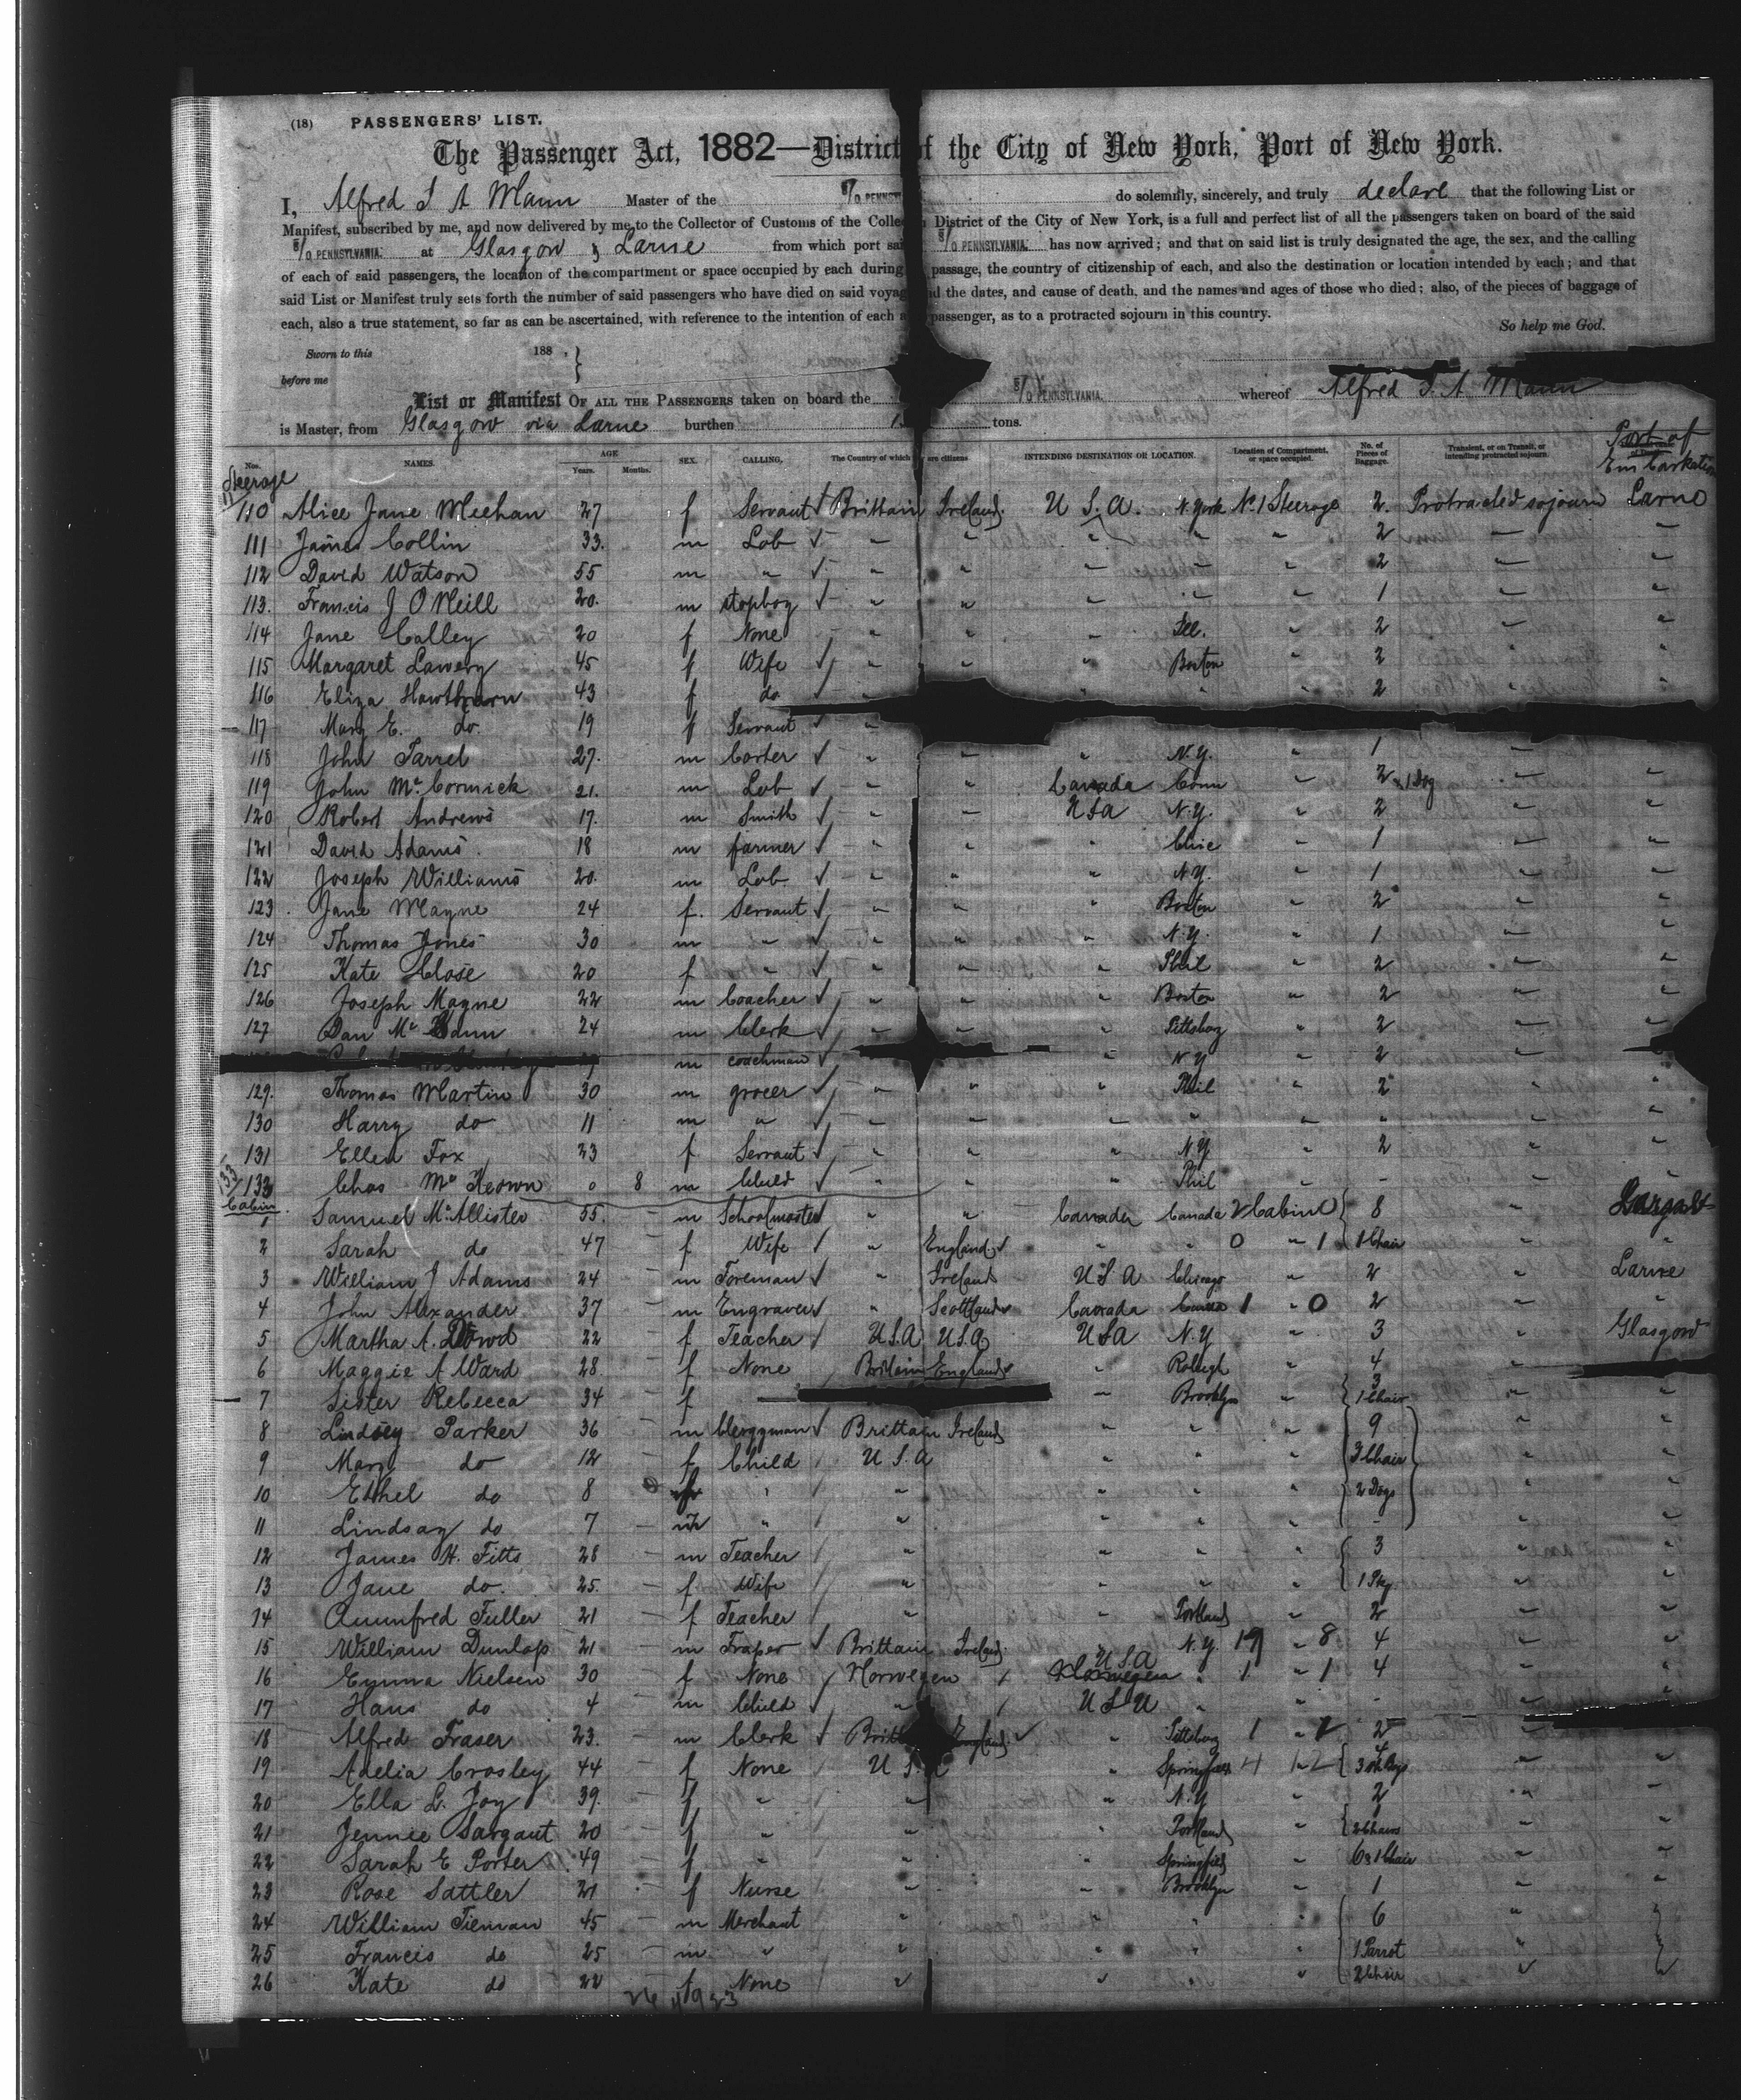 (18) PASSENGERS' LIST.
The Passenger Act, 1882—District of the City of New York, Port of New York.
I, Alfred S A Mann Master of the S/O PENNSYLV do solemnly, sincerely, and truly declare that the following List or
Manifest, subscribed by me, and now delivered by me to the Collector of Customs of the Colle District of the City of New York, is a full and perfect list of all the passengers taken on board of the said
S/O PENNSYLVANIA. at Glasgow & Larne from which port sai S/O PENNSYLVANIA. has now arrived; and that on said list is truly designated the age, the sex, and the calling
of each of said passengers, the location of the compartment or space occupied by each during passage, the country of citizenship of each, and also the destination or location intended by each; and that
said List or Manifest truly sets forth the number of said passengers who have died on said voyag d the dates, and cause of death, and the names and ages of those who died; also, of the pieces of baggage of
each, also a true statement, so far as can be ascertained, with reference to the intention of each a passenger, as to a protracted sojourn in this country.
So help me God.
Sworn to this 188 .
before me
List or Manifest OF ALL THE PASSENGERS taken on board the S/O PENNSYLVANIA. whereof Alfred S. A Mann
is Master, from Glasgow via Larne burthen tons.
Nos. NAMES. AGE Years. Months. SEX. CALLING. The Country of which are citizens. INTENDING DESTINATION OR LOCATION. Location of Compartment, or space occupied. No. of Pieces of Baggage. Transient, or on Transit, or intending protracted sojourn. Port of Embarkation
Steerage
110 Alice Jane Meehan 27 f Servant Brittain Ireland U S.A. N. York No 1 Steerage 2 Protracted sojourn Larne
111 James Collin 33. m Lab " " " " " 2 " "
112 David Watson 55 m " " " " " " 2 " "
113. Francis J O Neill 20. m " " " " " 1 " "
114 Jane Calley 20 f None " " " " 2 " "
115 Margaret Lawery 45 f Wife " " " Boston " 2 " "
116 Eliza Hawthorn 43 f do " " " 2 "
117 Mary E. do 19 f Servant "
118 John Farrel 27. m Carter " " " N.Y. " 1 " "
119 John McCormick 21. m Lab " " Canada Conn " 2 & 1 Dog " "
120 Robert Andrews 17. m Smith " " USA N.Y. " 2 " "
121 David Adams 18 m farmer " " " " 1 " "
122 Joseph Williams 20. m Lab " " " N.Y. " 1 " "
123. Jane Mayne 24 f. Servant " " " Boston " 2 " "
124 Thomas Jones 30 m " " " " N.Y. " 1 " "
125 Kate Close 20 f " " " " Phil " 2 " "
126 Joseph Mayne 22 m Coacher " " " Boston " 2 " "
127 Dan Mc Cann 24 m Clerk " " " Pittsburg " 2 " "
m coachman " N.Y " 2 " "
129. Thomas Martin 30 m grocer " " " Phil " 2 " "
130 Harry do 11 m " " " " " " " " "
131 Ellen Fox 23 f Servant " " " N.Y " 2 " "
133 Chas McKeown 0 8 m Child " " " Phil " - " "
Cabin
1 Samuel McAllister 55. m Schoolmaster " " Canada Canada 2 Cabin 0 8 "
2 Sarah do 47 f Wife " England " " 0 " 1 1 Chair " "
3 William J Adams 24 m Foreman " Ireland U S A Chicago " 2 " Larne
4 John Alexander 37 m Engraver " Scottland Canada 1 " 0 2 " "
5 Martha A. Dowd 22 f Teacher U.S.A U.S.A USA N.Y " 3 " Glasgow
6 Maggie A Ward 28. f None Britain England " Raleigh " 4 "
7 Sister Rebecca 34 f " Brooklyn " 3 1 Chair " "
8 Lindsey Parker 36 m Clergyman Brittain Ireland " " " 9 " "
9 Mary do 12 f Child U S. A " " " 3 Chair " "
10 Ethel do 8 f " " " " " 2 Dogs " "
11 Lindsay do 7 m " " " " " - " "
12 James H. Fitts 28 m Teacher " " " " 3 " "
13 Jane do. 25. f. Wife " " " " 1 Pkg " "
14 Fuller 21 f Teacher " " Portland " 2 " "
15 William Dunlop 21 m Brittain Ireland " N.Y. 19 " 8 4 " "
16 Emma Nielsen 30 f None Norwegen U S A " 1 " 1 4 " "
17 Hans do 4 m Child " U S A " " - " "
18 Alfred Fraser 23. m Clerk Britt England " Pittsburg 1 " 2 " "
19 Adelia Crosley 44 f None U S. A " Springfield 4 4 " "
20 Ella L. Joy 39. f " " " N.Y " 2 " "
21 Jennie Sargant 20 f " " " Portland " 2 Chairs " "
22 Sarah E Porter 49 f " " " Springfield " 6 & 1 Chair " "
23 Rose Sattler 21 f Nurse " " Brooklyn " 1 " "
24 William Tieman 45 m Merchant " " " " 6 " "
25 Francis do 25 m " " " " " 1 Parrot " "
26 Kate do 22 f None " " " " 2 Chair " "